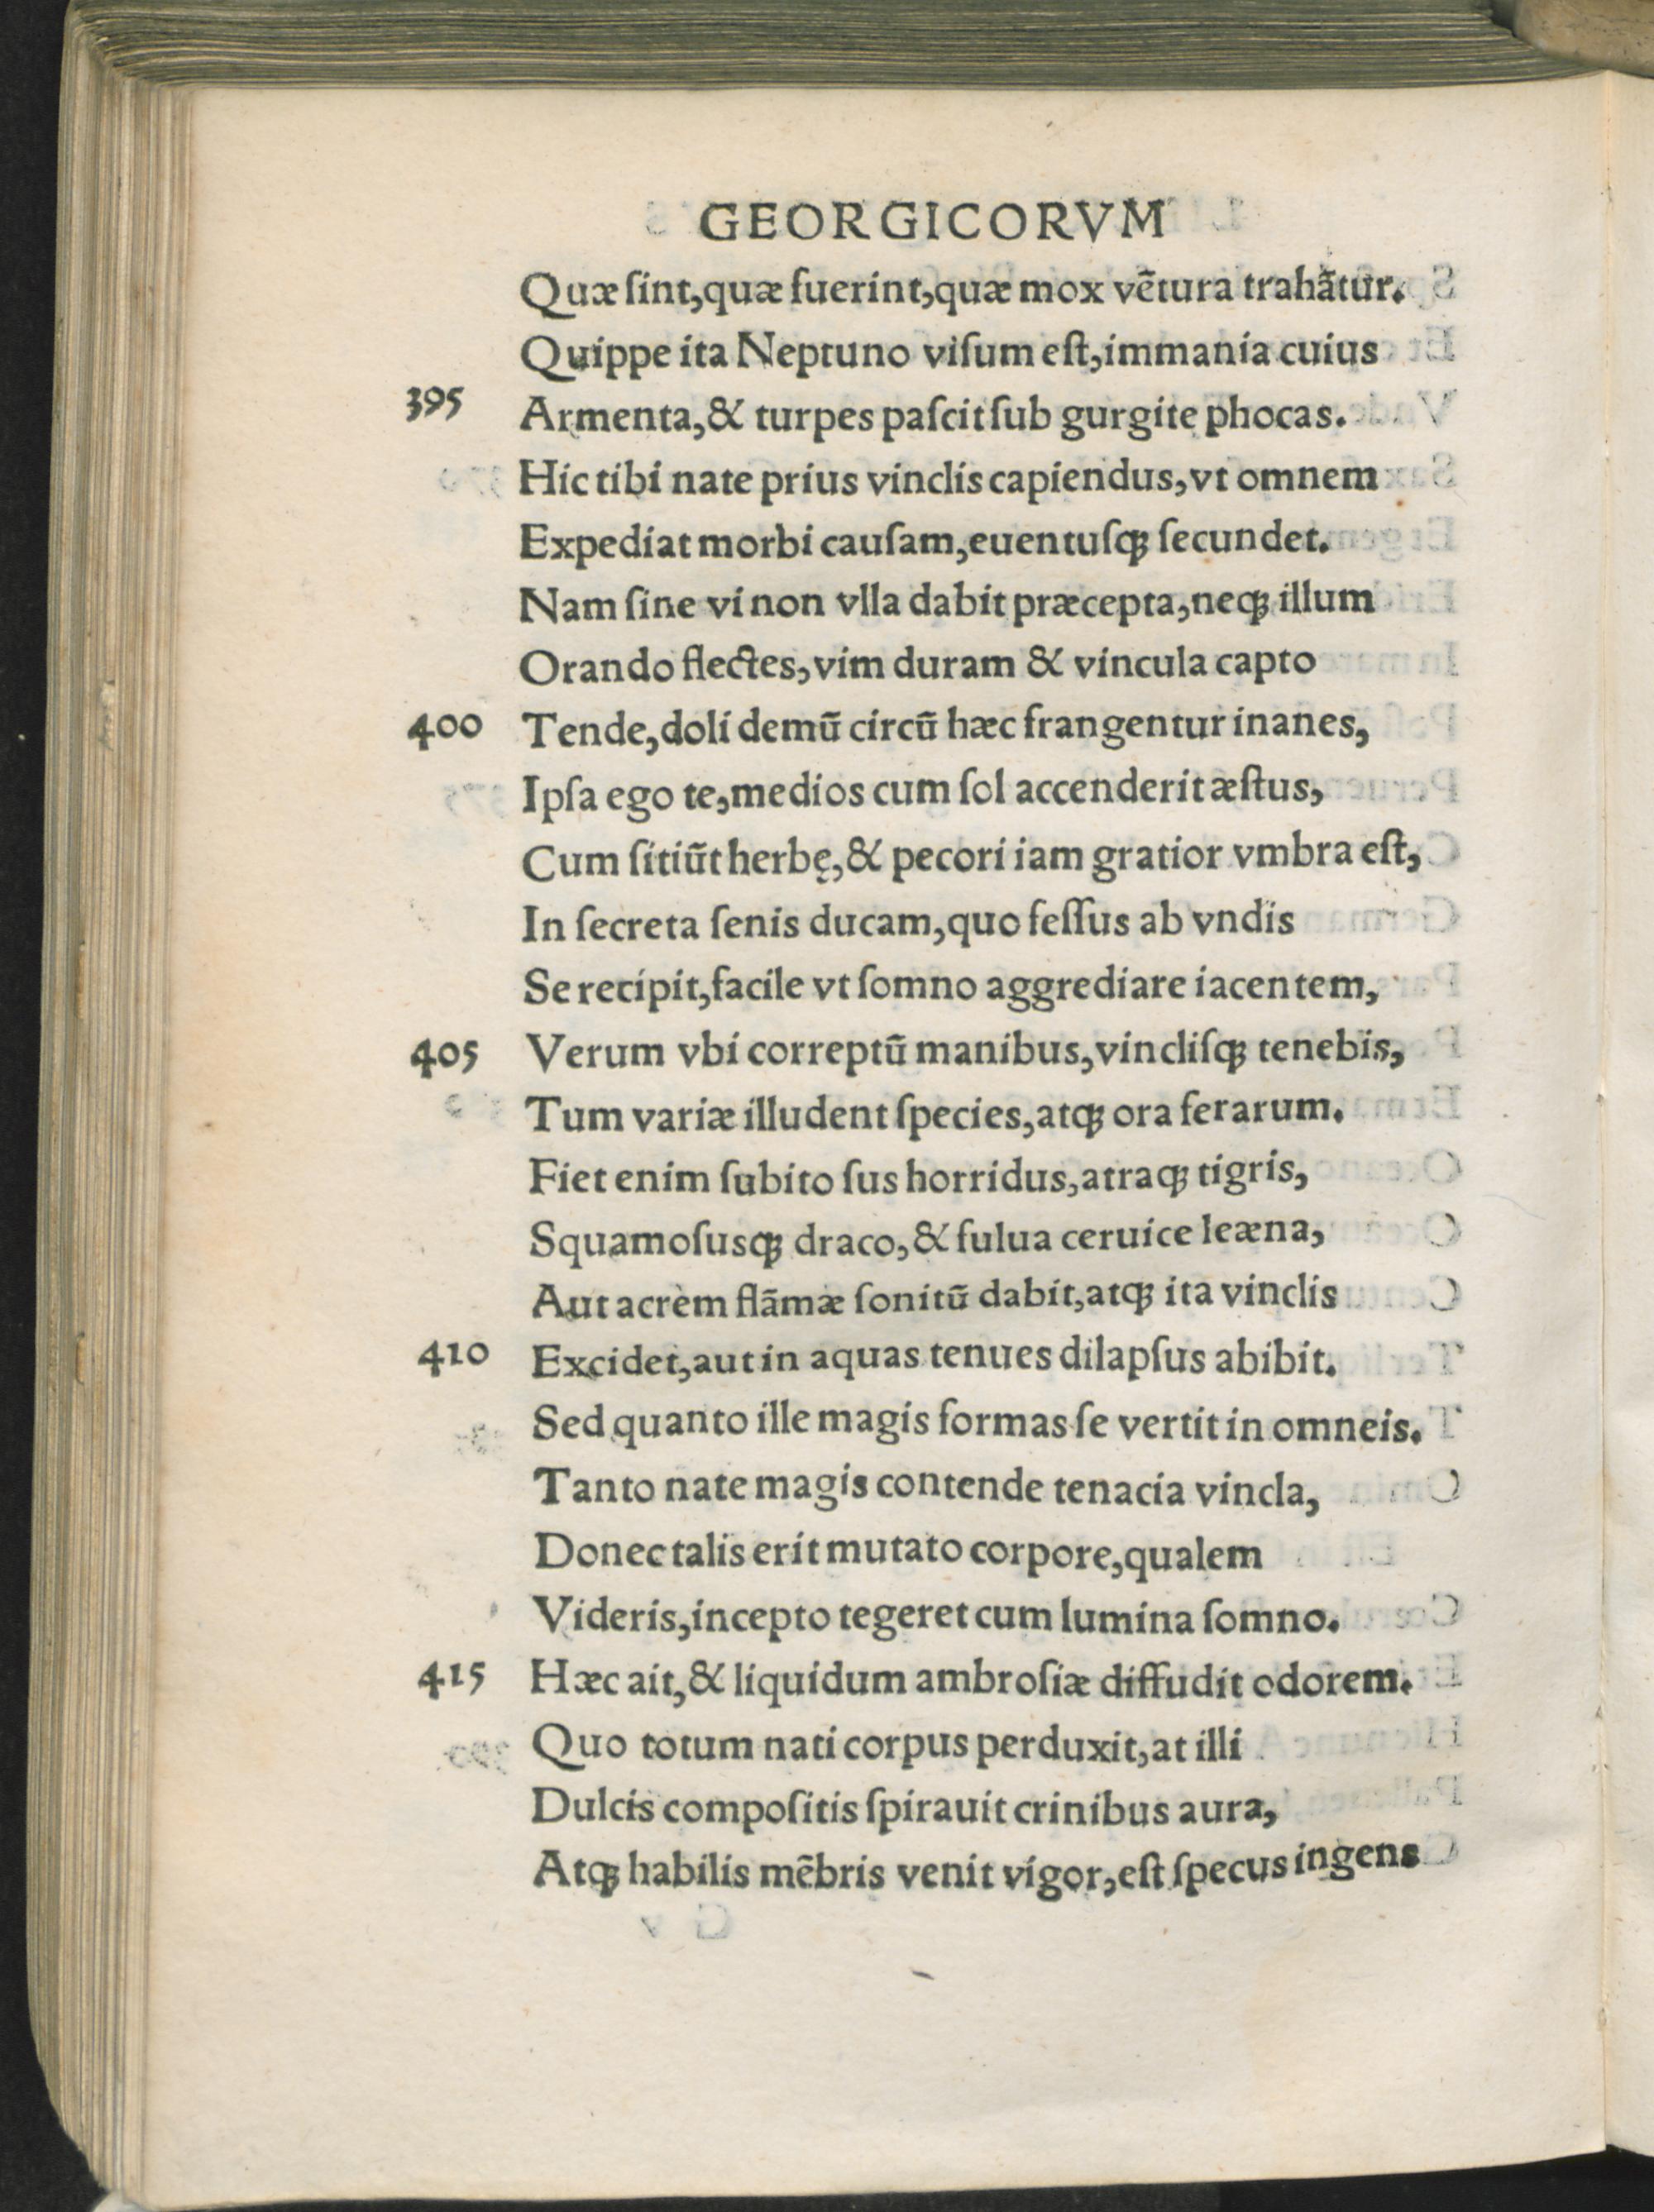 GEORGICORVM
Quæ ſint,quæ fuerint,quæ mox vẽtura trahãtur.
Quippe ita Neptuno viſum eſt,immania cuius
395 Armenta,& turpes paſcit ſub gurgite phocas.
Hic tibi nate prius vinclis capiendus,vt omnem
Expediat morbi cauſam,euentuſqꝫ ſecundet.
Nam ſine vi non vlla dabit præcepta,neqꝫ illum
Orando flectes,vim duram & vincula capto
400 Tende,doli demũ circũ hæc frangentur inanes,
Ipſa ego te,medios cum ſol accenderit æſtus,
Cum ſitiũt herbę,& pecori iam gratior vmbra eſt,
In ſecreta ſenis ducam,quo feſſus ab vndis
Se recipit,facile vt ſomno aggrediare iacentem,
405 Verum vbi correptũ manibus,vincliſqꝫ tenebis,
Tum variæ illudent ſpecies,atqꝫ ora ferarum.
Fiet enim ſubito ſus horridus,atraqꝫ tigris,
Squamoſusqꝫ draco,& fulua ceruice leæna,
Aut acrem flãmæ ſonitũ dabit,atqꝫ ita vinclis
410 Excidet,aut in aquas tenues dilapſus abibit.
Sed quanto ille magis formas ſe vertit in omneis.
Tanto nate magis contende tenacia vincla,
Donec talis erit mutato corpore,qualem
Videris,incepto tegeret cum lumina ſomno.
415 Hæc ait,& liquidum ambroſiæ diffudit odorem.
Quo totum nati corpus perduxit,at illi
Dulcis compoſitis ſpirauit crinibus aura,
Atqꝫ habilis mẽbris venit vigor,eſt ſpecus ingens